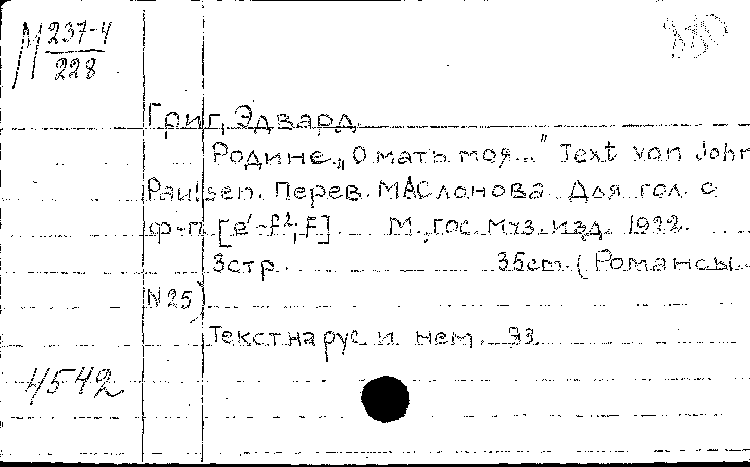 М 237-4
228
Григ, Эдвард
Родине. „О мать моя..." Text von John
Paulsen. Перев. М.А.Слонова. Для гол. с
ф-п. [e'-f², F]. М., Гос. муз. изд. 1922.
3 стр. 35 cm. (Романсы
N 25)
Текст на рус. и нем. яз.
4542